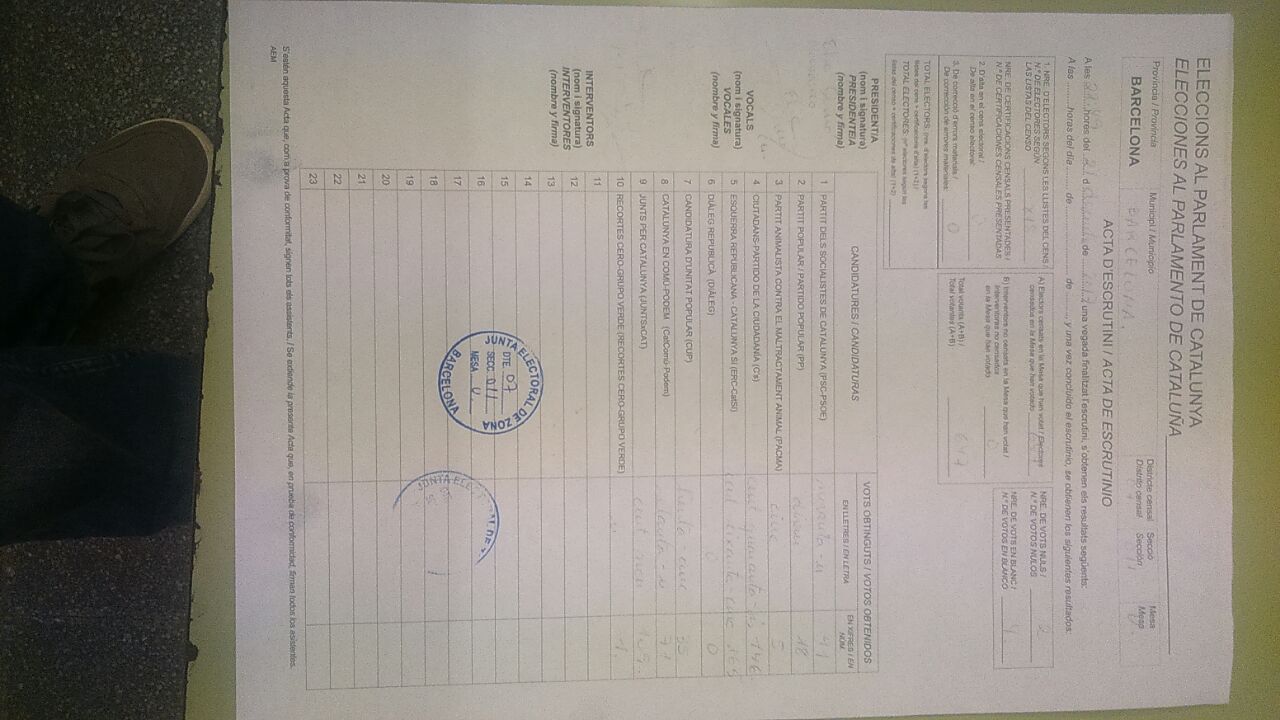 ELECCIONS AL PARLAMENT DE CATALUNYA
ELECCIONES AL PARLAMENTO DE CATALUÑA
Província / Provincia
BARCELONA
Municipi / Municipio
BARCELONA
Districte censal
Distrito censal
Secció
Sección
Mesa
Mesa
ACTA D'ESCRUTINI / ACTA DE ESCRUTINIO
A les hores del d de una vegada finalitzat l'escrutini, s'obtenen els resultats següents:
A las ......... horas del día ......... de ......... de ......... y una vez concluido el escrutinio, se obtienen los siguientes resultados:
1. NRE. D'ELECTORS SEGONS LES LLISTES DEL CENS /
N.º DE ELECTORES SEGÚN
LAS LISTAS DEL CENSO
NRE. DE CERTIFICACIONS CENSALS PRESENTADES /
N.º DE CERTIFICACIONES CENSALES PRESENTADAS
2. D'alta en el cens electoral /
De alta en el censo electoral:
3. De correcció d'errors materials /
De corrección de errores materiales: 0
TOTAL ELECTORS: (nre. d'electors segons les
llistes del cens + certificacions d'alta) (1+2) /
TOTAL ELECTORES: (nº electores según las
listas del censo + certificaciones de alta) (1+2)
A) Electors censats en la Mesa que han votat / Electores
censados en la Mesa que han votado
B) Interventors no censats en la Mesa que han votat /
Interventores no censados
en la Mesa que han votado
Total votants (A+B) /
Total votantes (A+B)
NRE. DE VOTS NULS /
N.º DE VOTOS NULOS 2
NRE. DE VOTS EN BLANC /
N.º DE VOTOS EN BLANCO 4
PRESIDENT/A
(nom i signatura)
PRESIDENTE/A
(nombre y firma)
VOCALS
(nom i signatura)
VOCALES
(nombre y firma)
INTERVENTORS
(nom i signatura)
INTERVENTORES
(nombre y firma)
CANDIDATURES / CANDIDATURAS
VOTS OBTINGUTS / VOTOS OBTENIDOS
EN LLETRES / EN LETRA
EN XIFRES / EN NÚM.
1 PARTIT DELS SOCIALISTES DE CATALUNYA (PSC-PSOE) 91
2 PARTIT POPULAR / PARTIDO POPULAR (PP) 18
3 PARTIT ANIMALISTA CONTRA EL MALTRACTAMENT ANIMAL (PACMA) cinc 5
4 CIUTADANS-PARTIDO DE LA CIUDADANÍA (C's) 146
5 ESQUERRA REPUBLICANA - CATALUNYA SÍ (ERC-CatSí)
6 DIÀLEG REPUBLICÀ (DIÀLEG) 0 0
7 CANDIDATURA D'UNITAT POPULAR (CUP) 35
8 CATALUNYA EN COMÚ-PODEM (CatComú-Podem)
9 JUNTS PER CATALUNYA (JUNTSxCAT) cent nou 109
10 RECORTES CERO-GRUPO VERDE (RECORTES CERO-GRUPO VERDE) 1
11
12
13
14
15
16
17
18
19
20
21
22
23
JUNTA ELECTORAL DE ZONA
DTE. 07
SECC. 011
MESA U
BARCELONA
JUNTA ELE
S'estén aquesta Acta que, com a prova de conformitat, signen tots els assistents. / Se extiende la presente Acta que, en prueba de conformidad, firman todos los asistentes.
AEM